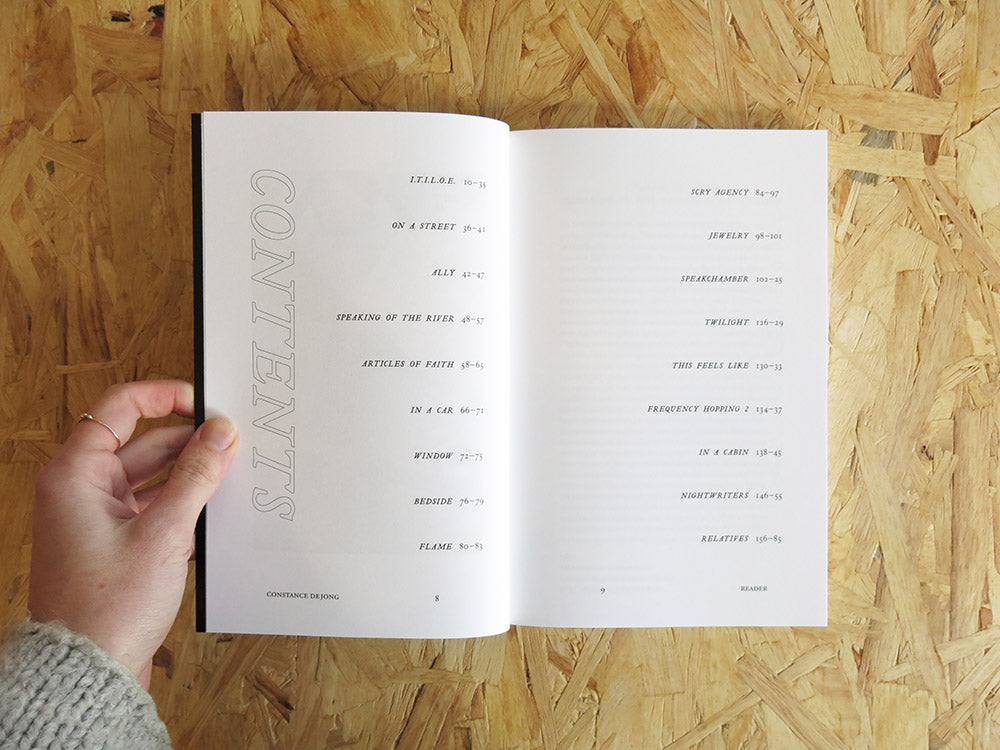 CONTENTS
I.T.I.L.O.E. 10–35
ON A STREET 36–41
ALLY 42–47
SPEAKING OF THE RIVER 48–57
ARTICLES OF FAITH 58–65
IN A CAR 66–71
WINDOW 72–75
BEDSIDE 76–79
FLAME 80–83
CONSTANCE DEJONG 8
SCRY AGENCY 84–97
JEWELRY 98–101
SPEAKCHAMBER 102–25
TWILIGHT 126–29
THIS FEELS LIKE 130–33
FREQUENCY HOPPING 2 134–37
IN A CABIN 138–45
NIGHTWRITERS 146–55
RELATIVES 156–85
9 READER